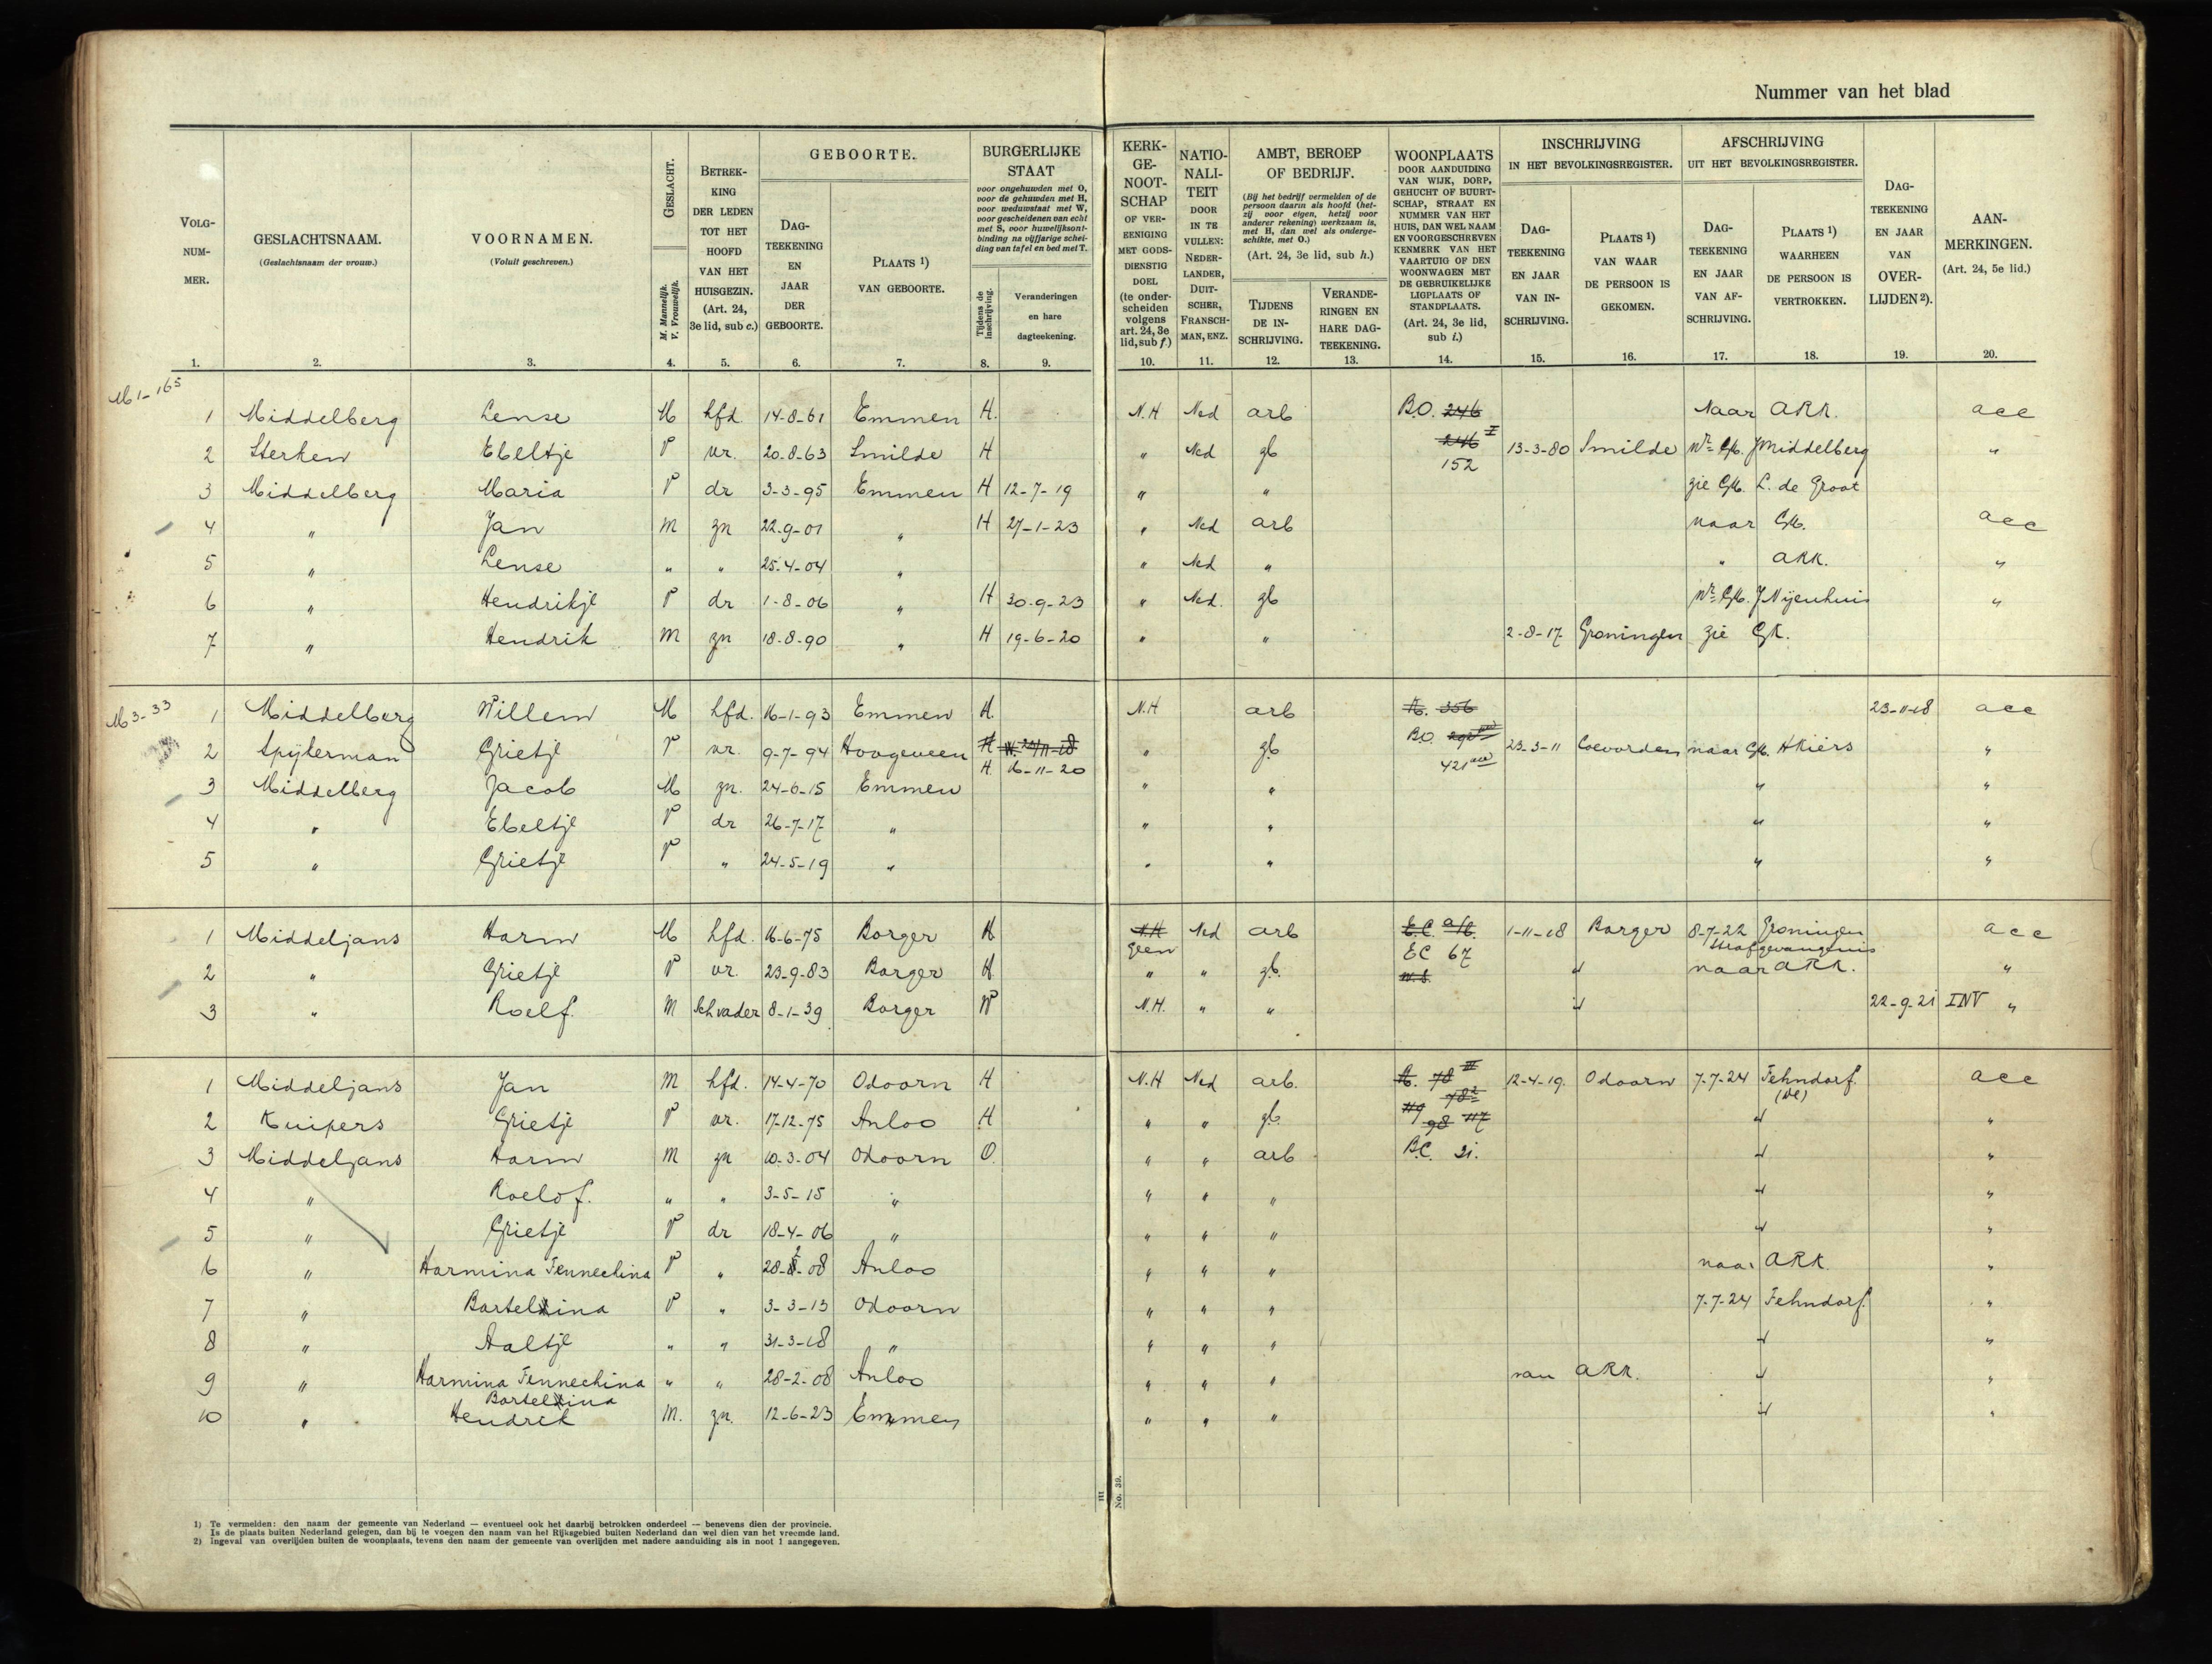 Nummer van het blad
VOLG-NUM-MER. GESLACHTSNAAM. (Geslachtsnaam der vrouw.) VOORNAMEN. (Voluit geschreven.) GESLACHT. M. Mannelijk. V. Vrouwelijk. BETREK-KING DER LEDEN TOT HET HOOFD VAN HET HUISGEZIN. (Art. 24, 3e lid, sub c.) GEBOORTE. DAG-TEEKENING EN JAAR DER GEBOORTE. PLAATS 1) VAN GEBOORTE. BURGERLIJKE STAAT voor ongehuwden met O, voor de gehuwden met H, voor weduwstaat met W, voor gescheidenen van echt met S, voor huwelijksont-binding na vijfjarige schei-ding van tafel en bed met T. Tijdens de inschrijving. Veranderingen en hare dagteekening.
KERK-GE-NOOT-SCHAP OF VER-EENIGING MET GODS-DIENSTIG DOEL (te onder-scheiden volgens art. 24, 3e lid, sub f.) NATIO-NALI-TEIT DOOR IN TE VULLEN: NEDER-LANDER, DUIT-SCHER, FRANSCH-MAN, ENZ. AMBT, BEROEP OF BEDRIJF. (Bij het bedrijf vermelden of de persoon daarin als hoofd (het-zij voor eigen, hetzij voor anderer rekening) werkzaam is, met H, dan wel als onderge-schikte, met O.) (Art. 24, 3e lid, sub h.) TIJDENS DE IN-SCHRIJVING. VERANDE-RINGEN EN HARE DAG-TEEKENING. WOONPLAATS DOOR AANDUIDING VAN WIJK, DORP, GEHUCHT OF BUURT-SCHAP, STRAAT EN NUMMER VAN HET HUIS, DAN WEL NAAM EN VOORGESCHREVEN KENMERK VAN HET VAARTUIG OF DEN WOONWAGEN MET DE GEBRUIKELIJKE LIGPLAATS OF STANDPLAATS. (Art. 24, 3e lid, sub i.)
INSCHRIJVING IN HET BEVOLKINGSREGISTER. DAG-TEEKENING EN JAAR VAN IN-SCHRIJVING. PLAATS 1) VAN WAAR DE PERSOON IS GEKOMEN. AFSCHRIJVING UIT HET BEVOLKINGSREGISTER. DAG-TEEKENING EN JAAR VAN AF-SCHRIJVING. PLAATS 1) WAARHEEN DE PERSOON IS VERTROKKEN. DAG-TEEKENING EN JAAR VAN OVER-LIJDEN 2). AAN-MERKINGEN. (Art. 24, 5e lid.)
1. 2. 3. 4. 5. 6. 7. 8. 9. 10. 11. 12. 13. 14. 15. 16. 17. 18. 19. 20.
M 1-165
1 Middelberg Lense M hfd. 14-8-61 Emmen H. N.H Ned arb B.O. 246 Naar ARK. acc
2 Sterken Ebeltje V vr. 20-8-63 Smilde H " Ned gb 246 I 152 13-3-80 Smilde Nr. GK. J Middelberg "
3 Middelberg Maria V dr 3-3-95 Emmen H 12-7-19 " " zie GK. L. de Groot
4 " Jan M zn 22-9-01 " H 27-1-23 " Ned arb naar GK. acc
5 " Lense " " 25-4-04 " " Ned " " ARK. "
6 " Hendrikje V dr 1-8-06 " H 30-9-23 " Ned. gb Nr. GK. J Nijenhuis "
7 " Hendrik M zn 18-8-90 " H 19-6-20 " " 2-8-17 Groningen zie GK.
M 3-33
1 Middelberg Willem M hfd. 16-1-93 Emmen H. N.H arb A. 356 23-11-18 acc
2 Spijkerman Grietje V vr. 9-7-94 Hoogeveen H W. 23/11-18 " gb B.O. 23-3-11 Coevorden naar GK. H Kiers "
H. 16-11-20 421
3 Middelberg Jacob M zn. 24-6-15 Emmen " " " "
4 " Ebeltje V dr 26-7-17 " " " " "
5 " Grietje V " 24-5-19 " " " " "
1 Middeljans Harm M hfd. 16-6-75 Borger H N.H geen Ned arb E.C. EC 67 1-11-18 Borger 8-7-22 Groningen Strafgevangenis acc
2 " Grietje V vr. 23-9-83 Borger H " " gb. " naar ARK. "
3 " Roelf. M Schvader 8-1-39 Borger W N.H. " " " 22-9-21 INV "
1 Middeljans Jan M hfd. 14-4-70 Odoorn H N.H Ned arb. A. 78 III 12-4-19. Odoorn 7-7-24 Fehndorf. (Dl) acc
2 Kuipers Grietje V vr. 17-12-75 Anloo H " " gb 98 117 " "
3 Middeljans Harm M zn 10-3-04 Odoorn O. " " arb B.C. 21. " "
4 " Roelof. " " 3-5-15 " " " " " "
5 " Grietje V dr 18-4-06 " " " " " "
6 " Harmina Fennechina V " 28-2-08 Anloo " " " naar ARK. "
7 " Bartelina V " 3-3-13 Odoorn " " " 7-7-24 Fehndorf. "
8 " Aaltje " " 31-3-18 " " " " " "
9 " Harmina Fennechina Bartelina " " 28-2-08 Anloo " " " van ARK. " "
10 " Hendrik M. zn. 12-6-23 Emmen " " " " "
III
No. 39.
1) Te vermelden: den naam der gemeente van Nederland — eventueel ook het daarbij betrokken onderdeel — benevens dien der provincie.
Is de plaats buiten Nederland gelegen, dan bij te voegen den naam van het Rijksgebied buiten Nederland dan wel dien van het vreemde land.
2) Ingeval van overlijden buiten de woonplaats, tevens den naam der gemeente van overlijden met nadere aanduiding als in noot 1 aangegeven.